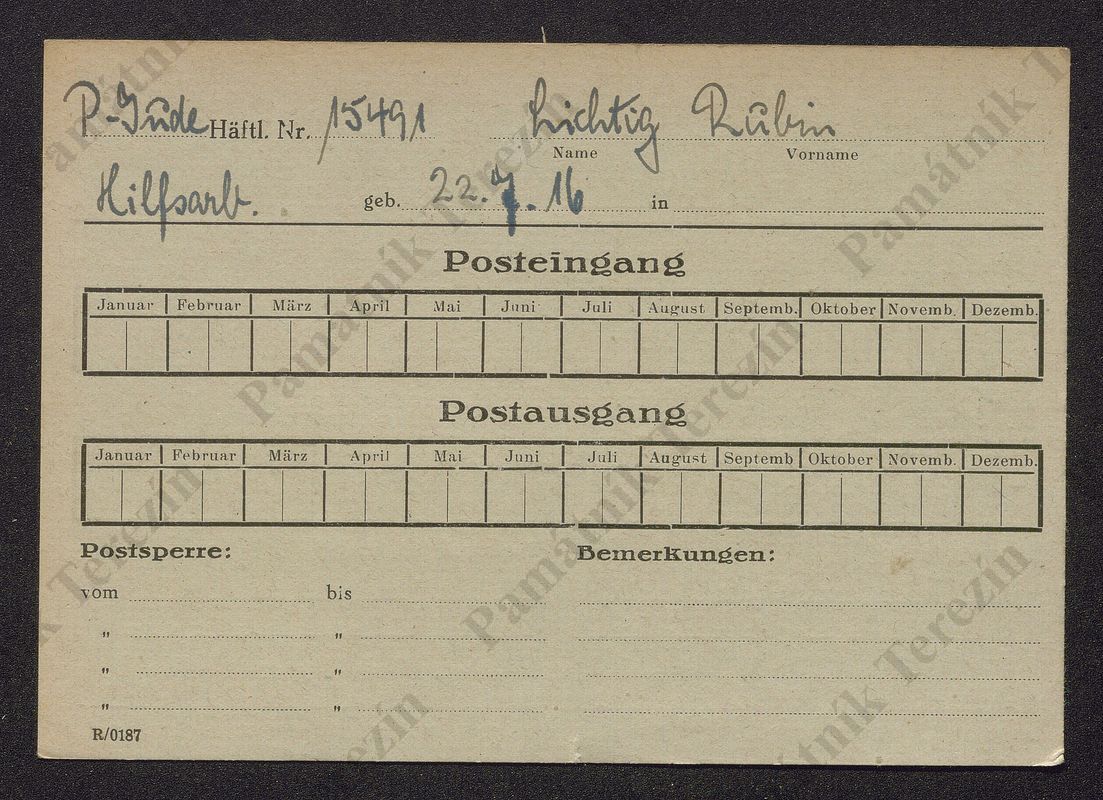 P-Jude Häftl. Nr. 15491 Lichtig Rubin
Name Vorname
Hilfsarb. geb. 22.7.16 in
Posteingang
Januar Februar März April Mai Juni Juli August Septemb. Oktober Novemb. Dezemb.
Postausgang
Januar Februar März April Mai Juni Juli August Septemb Oktober Novemb. Dezemb.
Postsperre: Bemerkungen:
vom bis
" "
" "
" "
R/0187
Památník Terezín
Památník Terezín
Památník Terezín
Památník Terezín